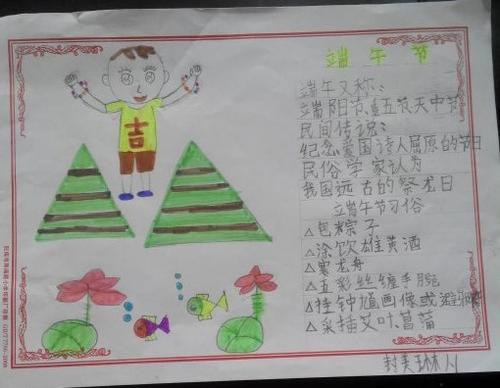 端午节
端午又称:
端阳节、重五节天中节
民间传说:
纪念爱国诗人屈原的节日
民俗学家认为
我国远古的祭龙日
立端午节习俗
△包粽子
△涂饮雄黄酒
△赛龙舟
△五彩丝缠手腕
△挂钟馗画像或
△采插艾叶、菖蒲
吉